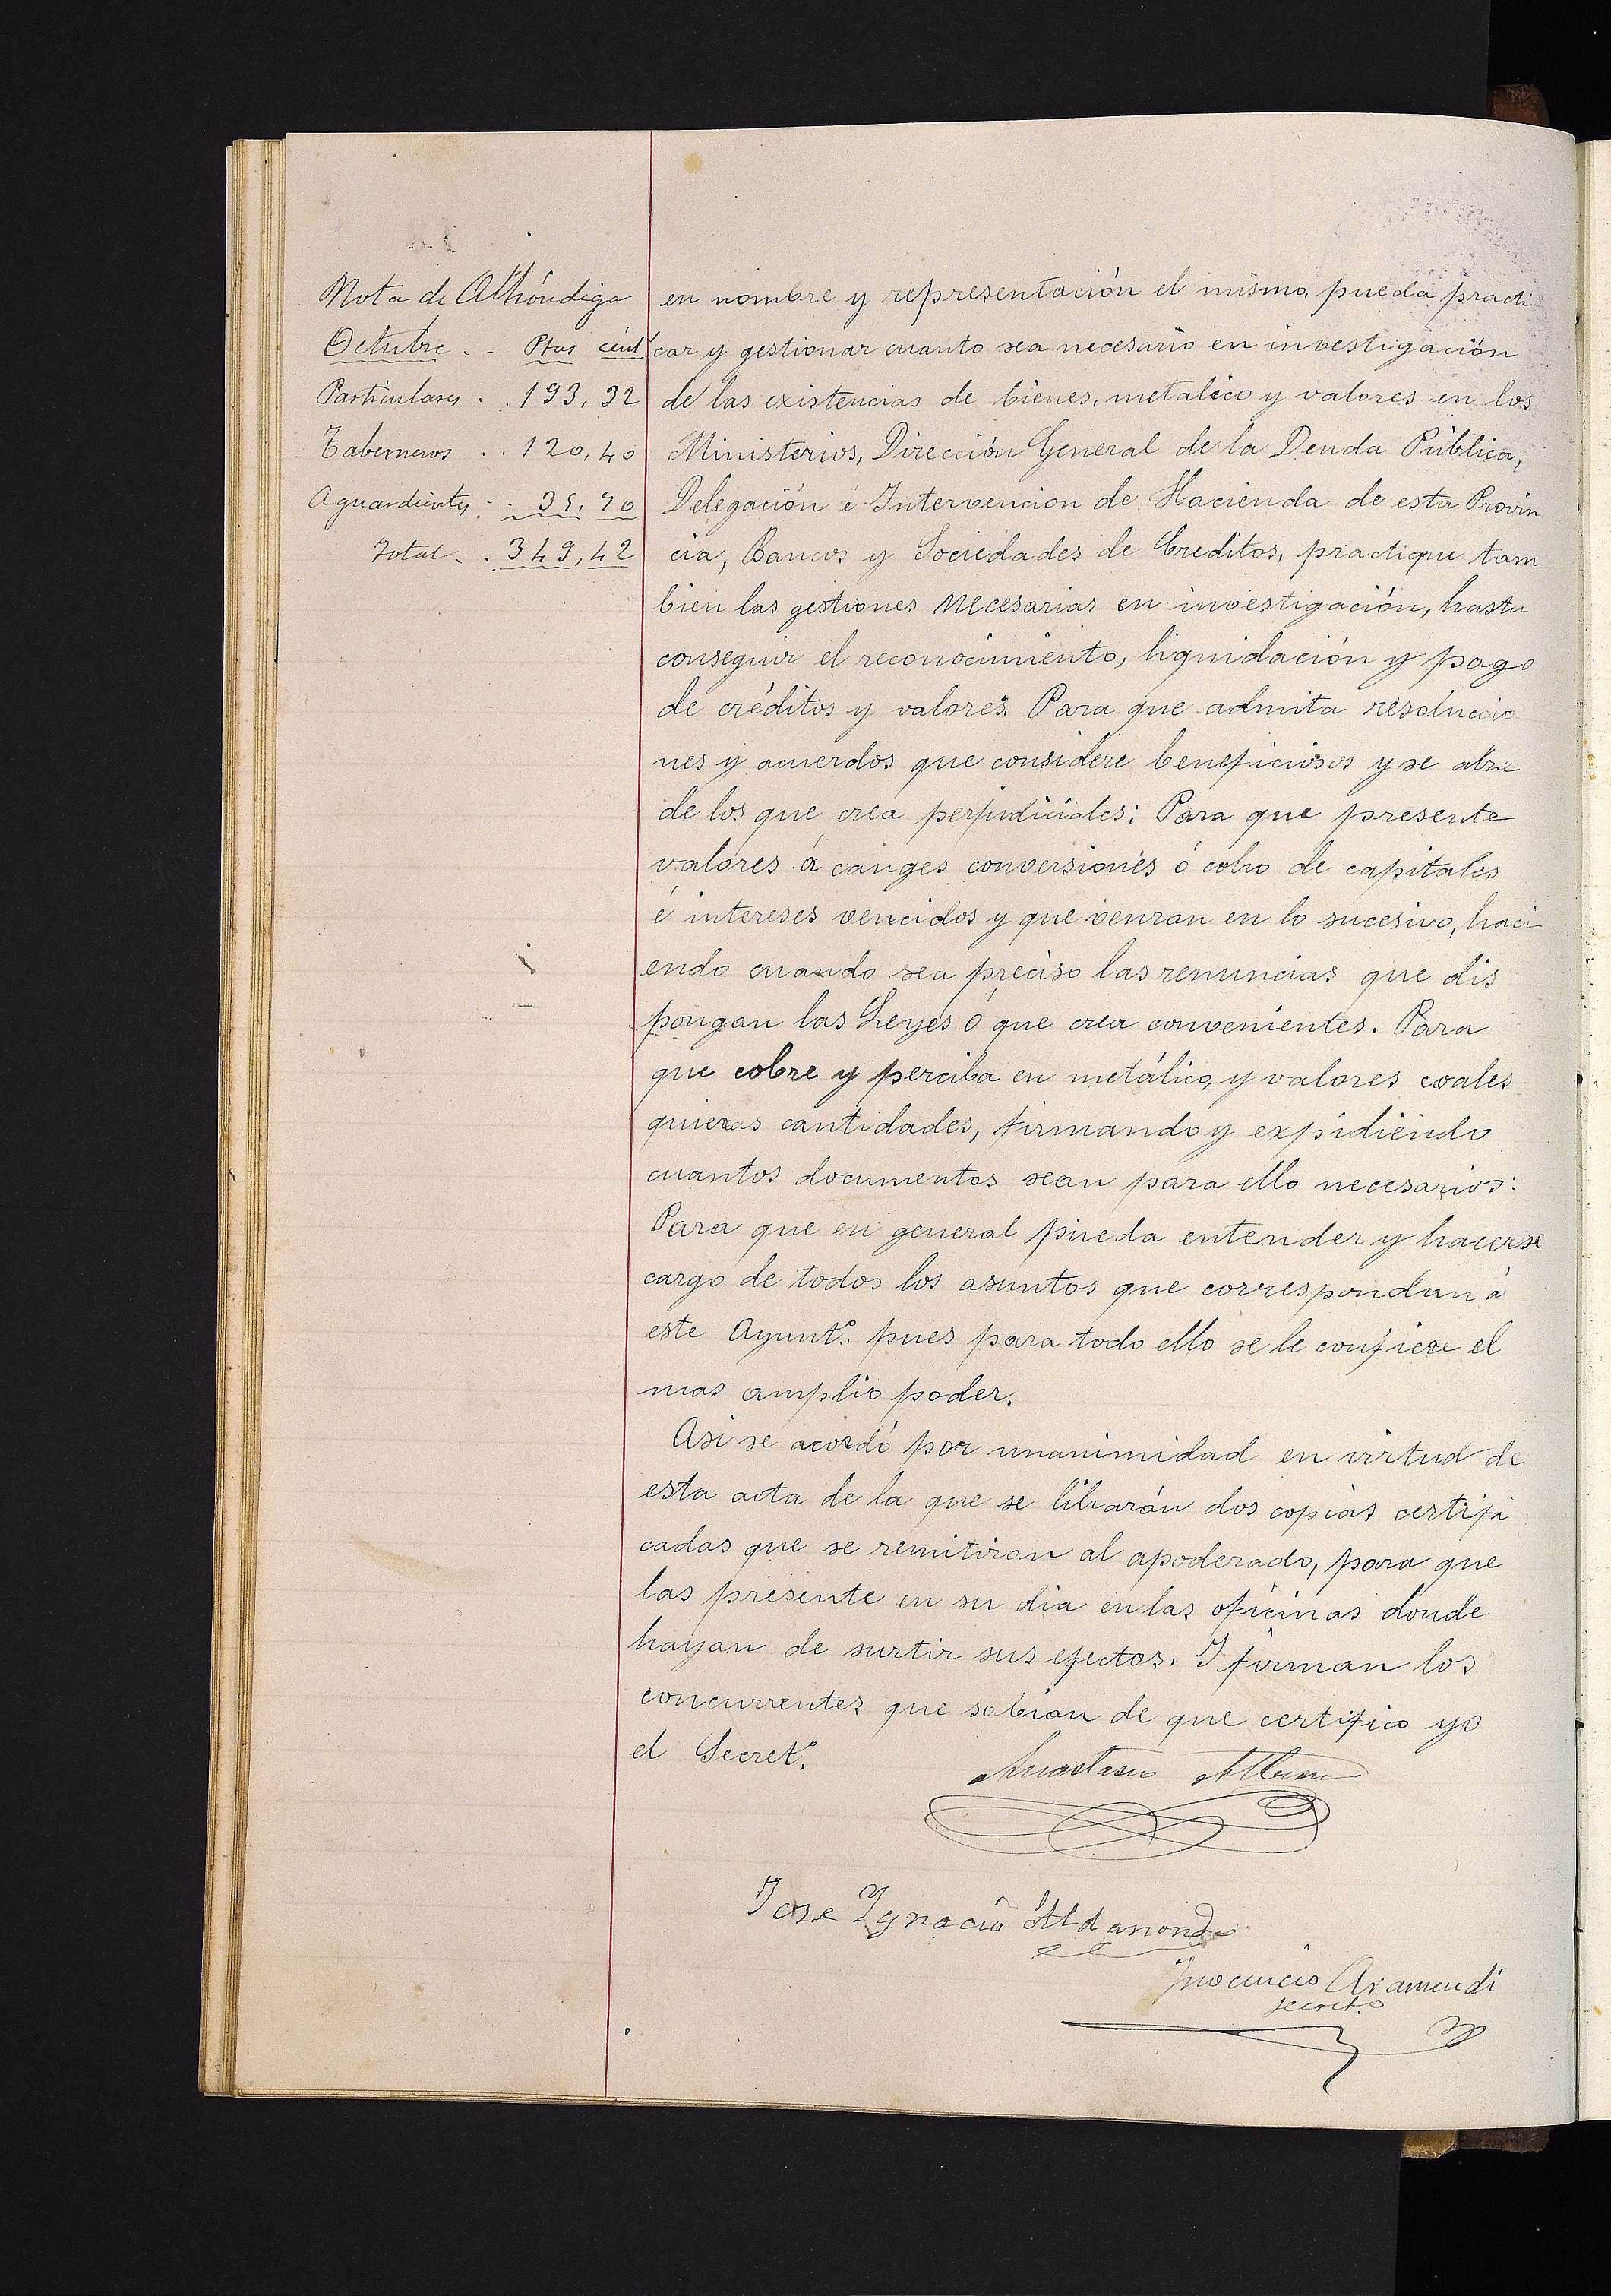 Nota de Alhóndiga
Octubre . . Ptas cént
Particulares . . 193,32
Taberneros . . 120,40
Aguardientes . . 35,70
Total . . 349,42
en nombre y representación el mismo, pueda practi
car y gestionar cuanto sea necesario en investigación
de las existencias de bienes, metalico y valores en los
Ministerios, Dirección General de la Deuda Pública,
Delegación é Intervencion de Hacienda de esta Provin
cia, Bancos y Sociedades de Creditos, practique tam
bien las gestiones necesarias en investigación, hasta
conseguir el reconocimiento, liquidación y pago
de créditos y valores. Para que admita resolucio
nes y acuerdos que considere beneficiosos y se alze
de los que crea perjudiciales: Para que presente
valores á canges conversiones ó cobro de capitales
é intereses vencidos y que venzan en lo sucesivo, haci
endo cuando sea preciso las renuncias que dis
pongan las Leyes ó que crea convenientes. Para
que cobre y perciba en metálico, y valores cuales
quieras cantidades, firmando y expidiendo
cuantos documentos sean para ello necesarios:
Para que en general pueda entender y hacerse
cargo de todos los asuntos que correspondan á
este Ayunt.º pues para todo ello se le confiere el
mas amplio poder.
Asi se acordó por unanimidad en virtud de
esta acta de la que se librarán dos copias certifi
cadas que se remitiran al apoderado, para que
las presente en su dia en las oficinas donde
hayan de surtir sus efectos. I firman los
concurrentes que sabian de que certifico yo
el Secret.º
Anastasio
Jose Ygnacio Aldanondo
Ynocencio Aramendi
secret.º